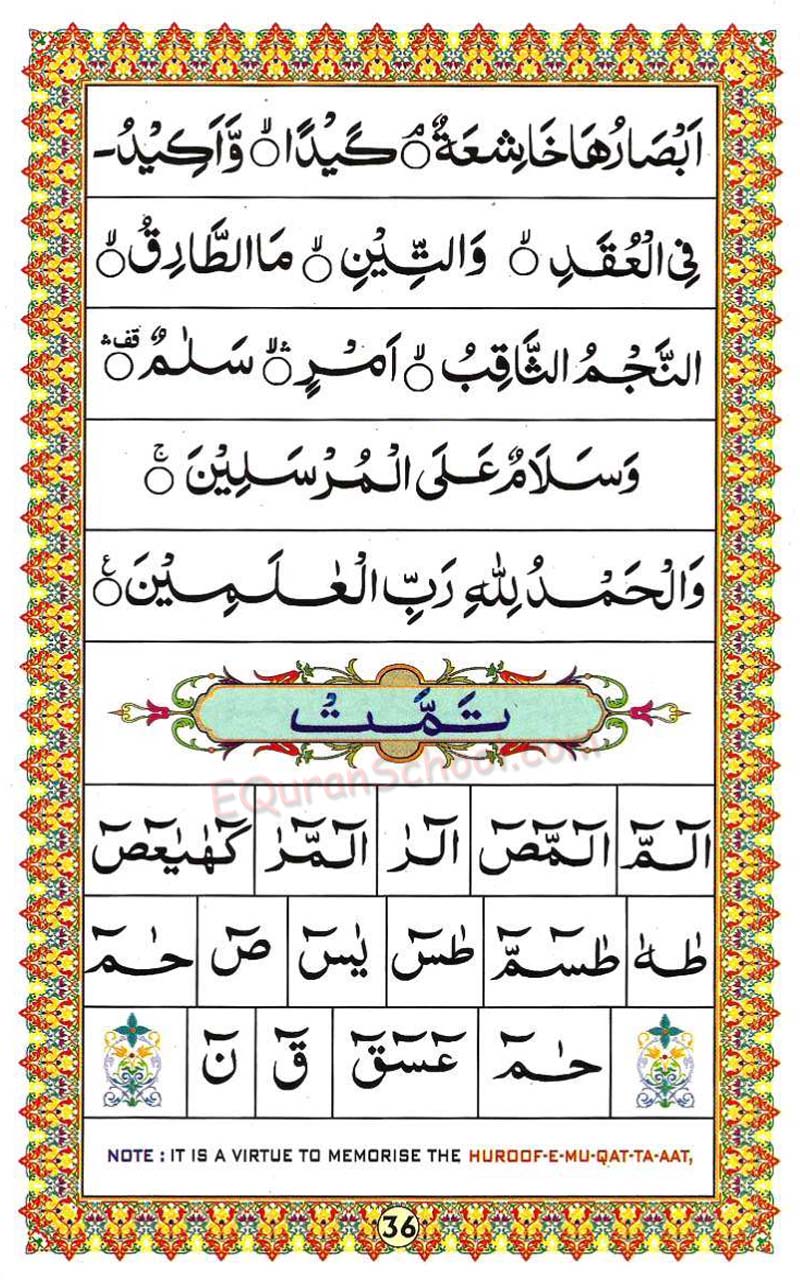 اَبْصَارُهَا خَاشِعَةٌ ۘ كَيْدًا ۙ وَّاَكِيْدُ -
فِى الْعُقَدِ ۙ وَالتِّيْنِ ۙ مَا الطَّارِقُ ۙ
النَّجْمُ الثَّاقِبُ ۙ اَمْرٍ ۛۙ سَلٰمٌ ۛ قف
وَسَلَامٌ عَلَى الْمُرْسَلِيْنَ ۚ
وَالْحَمْدُ لِلّٰهِ رَبِّ الْعٰلَمِيْنَ ع
تَمَّتْ
EQuranSchool.com
الٓمّٓ الٓمّٓصٓ الٓرٰ الٓمّٓرٰ كٓهٰيٰعٓصٓ
طٰهٰ طٰسٓمّٓ طٰسٓ يٰسٓ صٓ حٰمٓ
حٰمٓ عٓسٓقٓ قٓ نٓ
NOTE : IT IS A VIRTUE TO MEMORISE THE HUROOF-E-MU-QAT-TA-AAT,
36